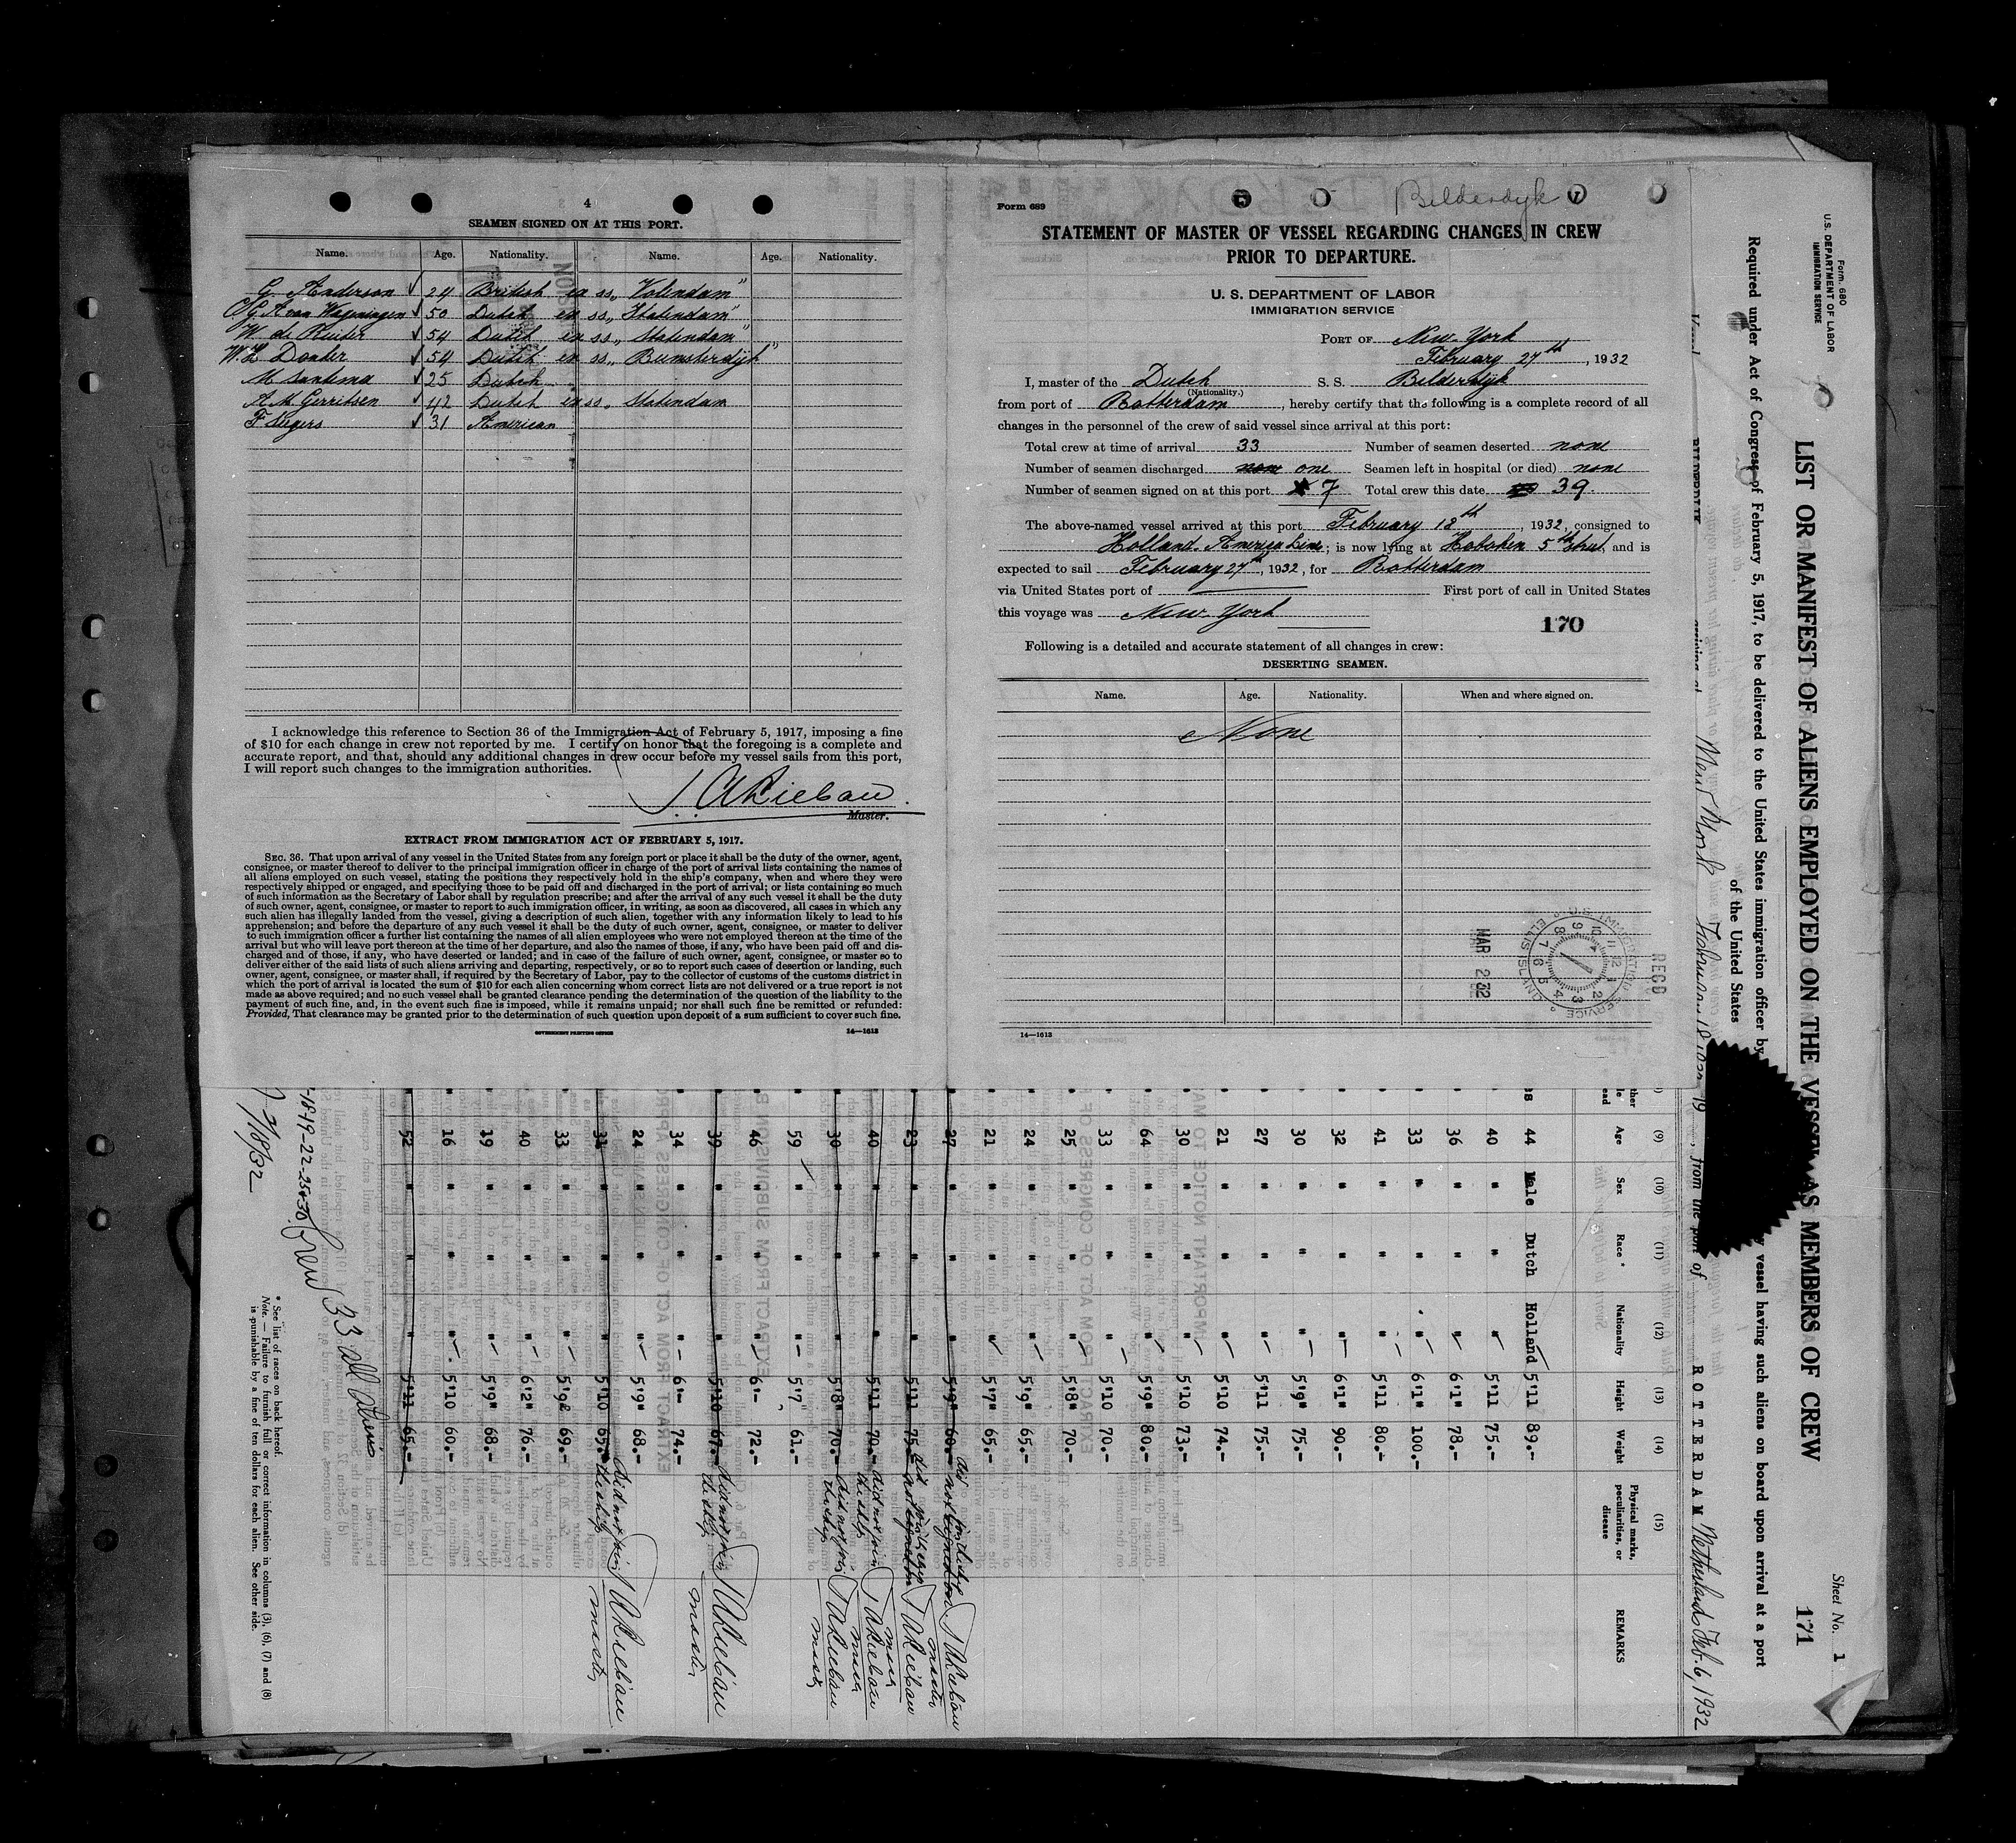 4
SEAMEN SIGNED ON AT THIS PORT.
Name. Age. Nationality. Name. Age. Nationality.
G. Anderson 24 British ex ss „ Volendam "
50 Dutch ex ss „ Statendam "
W. de Ruiter 54 Dutch ex ss „ Statendam "
54 Dutch ex ss „
M Santema 25 Dutch
A. M Gerritsen 42 Dutch ex ss. Statendam
F Segers 31 American
I acknowledge this reference to Section 36 of the Immigration Act of February 5, 1917, imposing a fine
of $10 for each change in crew not reported by me. I certify on honor that the foregoing is a complete and
accurate report, and that, should any additional changes in crew occur before my vessel sails from this port,
I will report such changes to the immigration authorities.
Master.
EXTRACT FROM IMMIGRATION ACT OF FEBRUARY 5, 1917.
SEC. 36. That upon arrival of any vessel in the United States from any foreign port or place it shall be the duty of the owner, agent,
consignee, or master thereof to deliver to the principal immigration officer in charge of the port of arrival lists containing the names of
all aliens employed on such vessel, stating the positions they respectively hold in the ship's company, when and where they were
respectively shipped or engaged, and specifying those to be paid off and discharged in the port of arrival; or lists containing so much
of such information as the Secretary of Labor shall by regulation prescribe; and after the arrival of any such vessel it shall be the duty
of such owner, agent, consignee, or master to report to such immigration officer, in writing, as soon as discovered, all cases in which any
such alien has illegally landed from the vessel, giving a description of such alien, together with any information likely to lead to his
apprehension; and before the departure of any such vessel it shall be the duty of such owner, agent, consignee, or master to deliver
to such immigration officer a further list containing the names of all alien employees who were not employed thereon at the time of the
arrival but who will leave port thereon at the time of her departure, and also the names of those, if any, who have been paid off and dis-
charged and of those, if any, who have deserted or landed; and in case of the failure of such owner, agent, consignee, or master so to
deliver either of the said lists of such aliens arriving and departing, respectively, or so to report such cases of desertion or landing, such
owner, agent, consignee, or master shall, if required by the Secretary of Labor, pay to the collector of customs of the customs district in
which the port of arrival is located the sum of $10 for each alien concerning whom correct lists are not delivered or a true report is not
made as above required; and no such vessel shall be granted clearance pending the determination of the question of the liability to the
payment of such fine, and, in the event such fine is imposed, while it remains unpaid; nor shall such fine be remitted or refunded:
Provided, That clearance may be granted prior to the determination of such question upon deposit of a sum sufficient to cover such fine.
GOVERNMENT PRINTING OFFICE 14—1613
Form 689
Bilderdyk
STATEMENT OF MASTER OF VESSEL REGARDING CHANGES IN CREW
PRIOR TO DEPARTURE.
U. S. DEPARTMENT OF LABOR
IMMIGRATION SERVICE
PORT OF New York
February 27th, 1932
I, master of the Dutch S. S. Bilderdijk
(Nationality.)
from port of Rotterdam, hereby certify that the following is a complete record of all
changes in the personnel of the crew of said vessel since arrival at this port:
Total crew at time of arrival 33 Number of seamen deserted none
Number of seamen discharged none one Seamen left in hospital (or died) none
Number of seamen signed on at this port 7 Total crew this date 39.
The above-named vessel arrived at this port February 18th, 1932, consigned to
Holland-America Line; is now lying at Hoboken 5th street, and is
expected to sail February 27th, 1932, for Rotterdam
via United States port of First port of call in United States
this voyage was New York
170
Following is a detailed and accurate statement of all changes in crew:
DESERTING SEAMEN.
Name. Age. Nationality. When and where signed on.
None
REC'D
MAR 2 32
U.S. IMMIGRATION SERVICE ELLIS ISLAND
14—1613
Form 680
U.S. DEPARTMENT OF LABOR
IMMIGRATION SERVICE
Sheet No. 1
LIST OR MANIFEST OF ALIENS EMPLOYED ON THE VESSEL AS MEMBERS OF CREW
171
Required under Act of Congress of February 5, 1917, to be delivered to the United States immigration officer by vessel having such aliens on board upon arrival at a port
of the United States
New York February 18 19, from the port of ROTTERDAM Netherlands Feb. 6, 1932
(9) (10) (11) (12) (13) (14) (15)
Age Sex Race * Nationality Height Weight Physical marks, peculiarities, or disease REMARKS
44 Male Dutch Holland 5'11 89.-
40 " " " 5'11 75.-
36 " " " 6'1" 78.-
33 " " " 6'1" 100.-
41 " " " 5'11 80.-
32 " " " 6'1" 90.-
30 " " " 5'9" 75.-
27 " " " 5'11 75.-
21 " " " 5'10 74.-
30 " " " 5'10 73.-
64 " " " 5'9" 80.-
33 " " " 5'10 70.-
25 " " " 5'8" 70.-
24 " " " 5'9" 65.-
21 " " " 5'7" 65.-
27 " " " 5'9" 60.-
23 " " " 5'11 75.-
40 " " " 5'11 70.- did not join the ship
30 " " " 5'8" 70.- did not join the ship
59 " " " 5'7" 61.-
46 " " " 6'- 72.-
39 " " " 5'10 67.- did not join the ship
34 " " " 6'- 74.-
24 " " " 5'9" 68.-
31 " " " 5'10 65.- did not join the ship
33 " " " 5'9½ 69.-
40 " " " 6'2" 76.-
19 " " " 5'9" 68.-
16 " " " 5'10 60.-
52 " " " 5'11 65.-
33 all aliens
2/18/32
* See list of races on back hereof.
Note. — Failure to furnish full or correct information in columns (3), (6), (7) and (8)
is punishable by a fine of ten dollars for each alien. See other side.